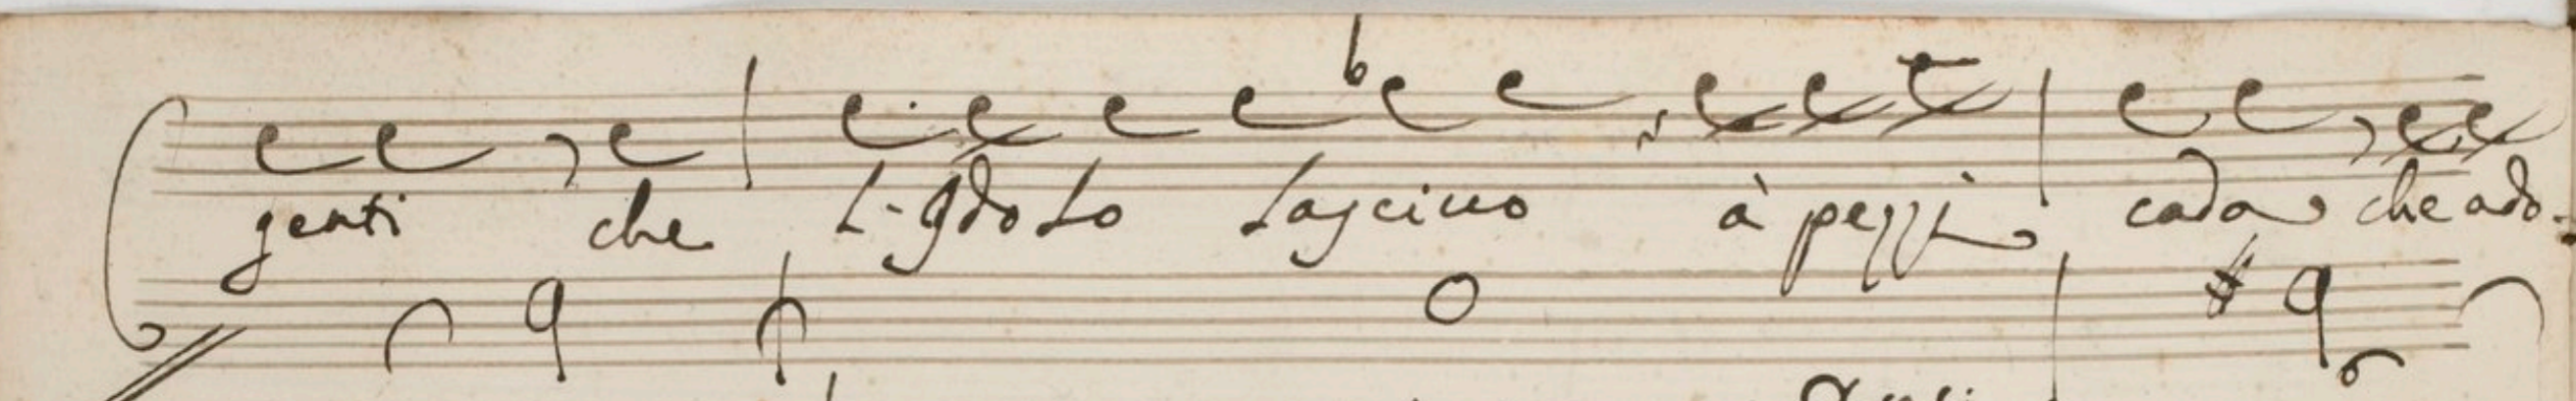 genti che L-Jdolo Lasciuo à pezzi cada che ado=